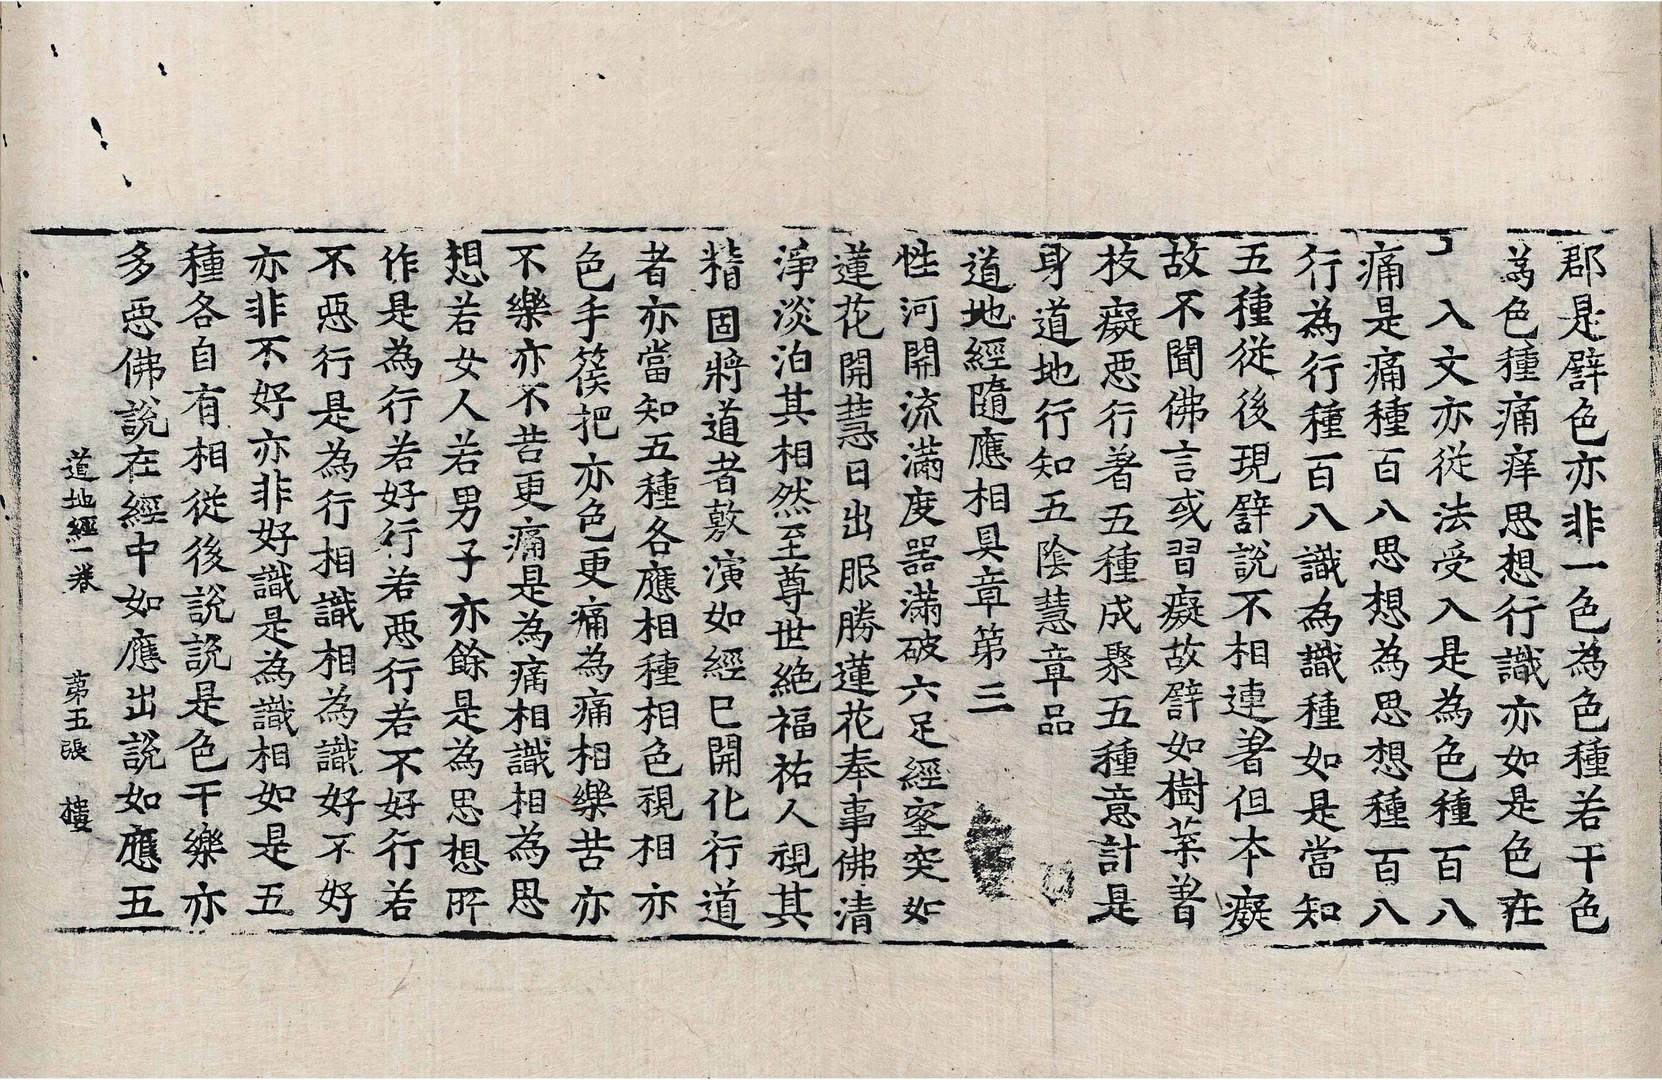 郡是譬色亦非一色為色種若干色
為色種痛痒思想行識亦如是色在
入文亦從法受入是為色種百八
痛是痛種百八思想為思想種百八
行為行種百八識為識種如是當知
五種從後現譬說不相連著但本癡
故不聞佛言或習癡故譬如樹葉著
枝癡惡行著五種成聚五種意計是
身道地行知五陰慧章品
道地經隨應相具章第三
性河開流滿度器滿破六足經蜜突如
蓮花開慧日出服勝蓮花奉事佛清
淨淡泊其相然至尊世絶福祐人視其
㨗固將道者敷演如經已開化行道
者亦當知五種各應相種相色視相亦
色手篌把亦色更痛為痛相樂苦亦
不樂亦不苦更痛是為痛相識相為思
想若女人若男子亦餘是為思想所
作是為行若好行若惡行若不好行若
不惡行是為行相識相為識好不好
亦非不好亦非好識是為識相如是五
種各自有相從後說說是色干樂亦
多惡佛說在經中如應出說如應五
道地經一卷 第五張 樓